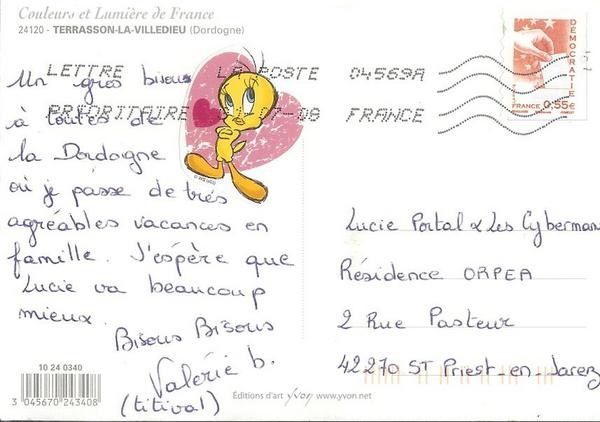 Couleurs et Lumière de France
24120 - TERRASSON-LA-VILLEDIEU (Dordogne)
LETTRE LA POSTE 04569A
PRIORITAIRE -07-09 FRANCE
DÉMOCRATIE
FRANCE 0,55€
Un gros bisous
à toutes de
la Dordogne
où je passe de très
agréables vacances en
famille. J'espère que
Lucie va beaucoup
mieux.
Bisous Bisous
Valérie b.
(titival)
Lucie Portal & Les Cyberman
Résidence ORPEA
2 Rue Pasteur
42270 ST Priest-en-Jarez
10 24 0340
3 045670 243408
Éditions d'art yvon www.yvon.net